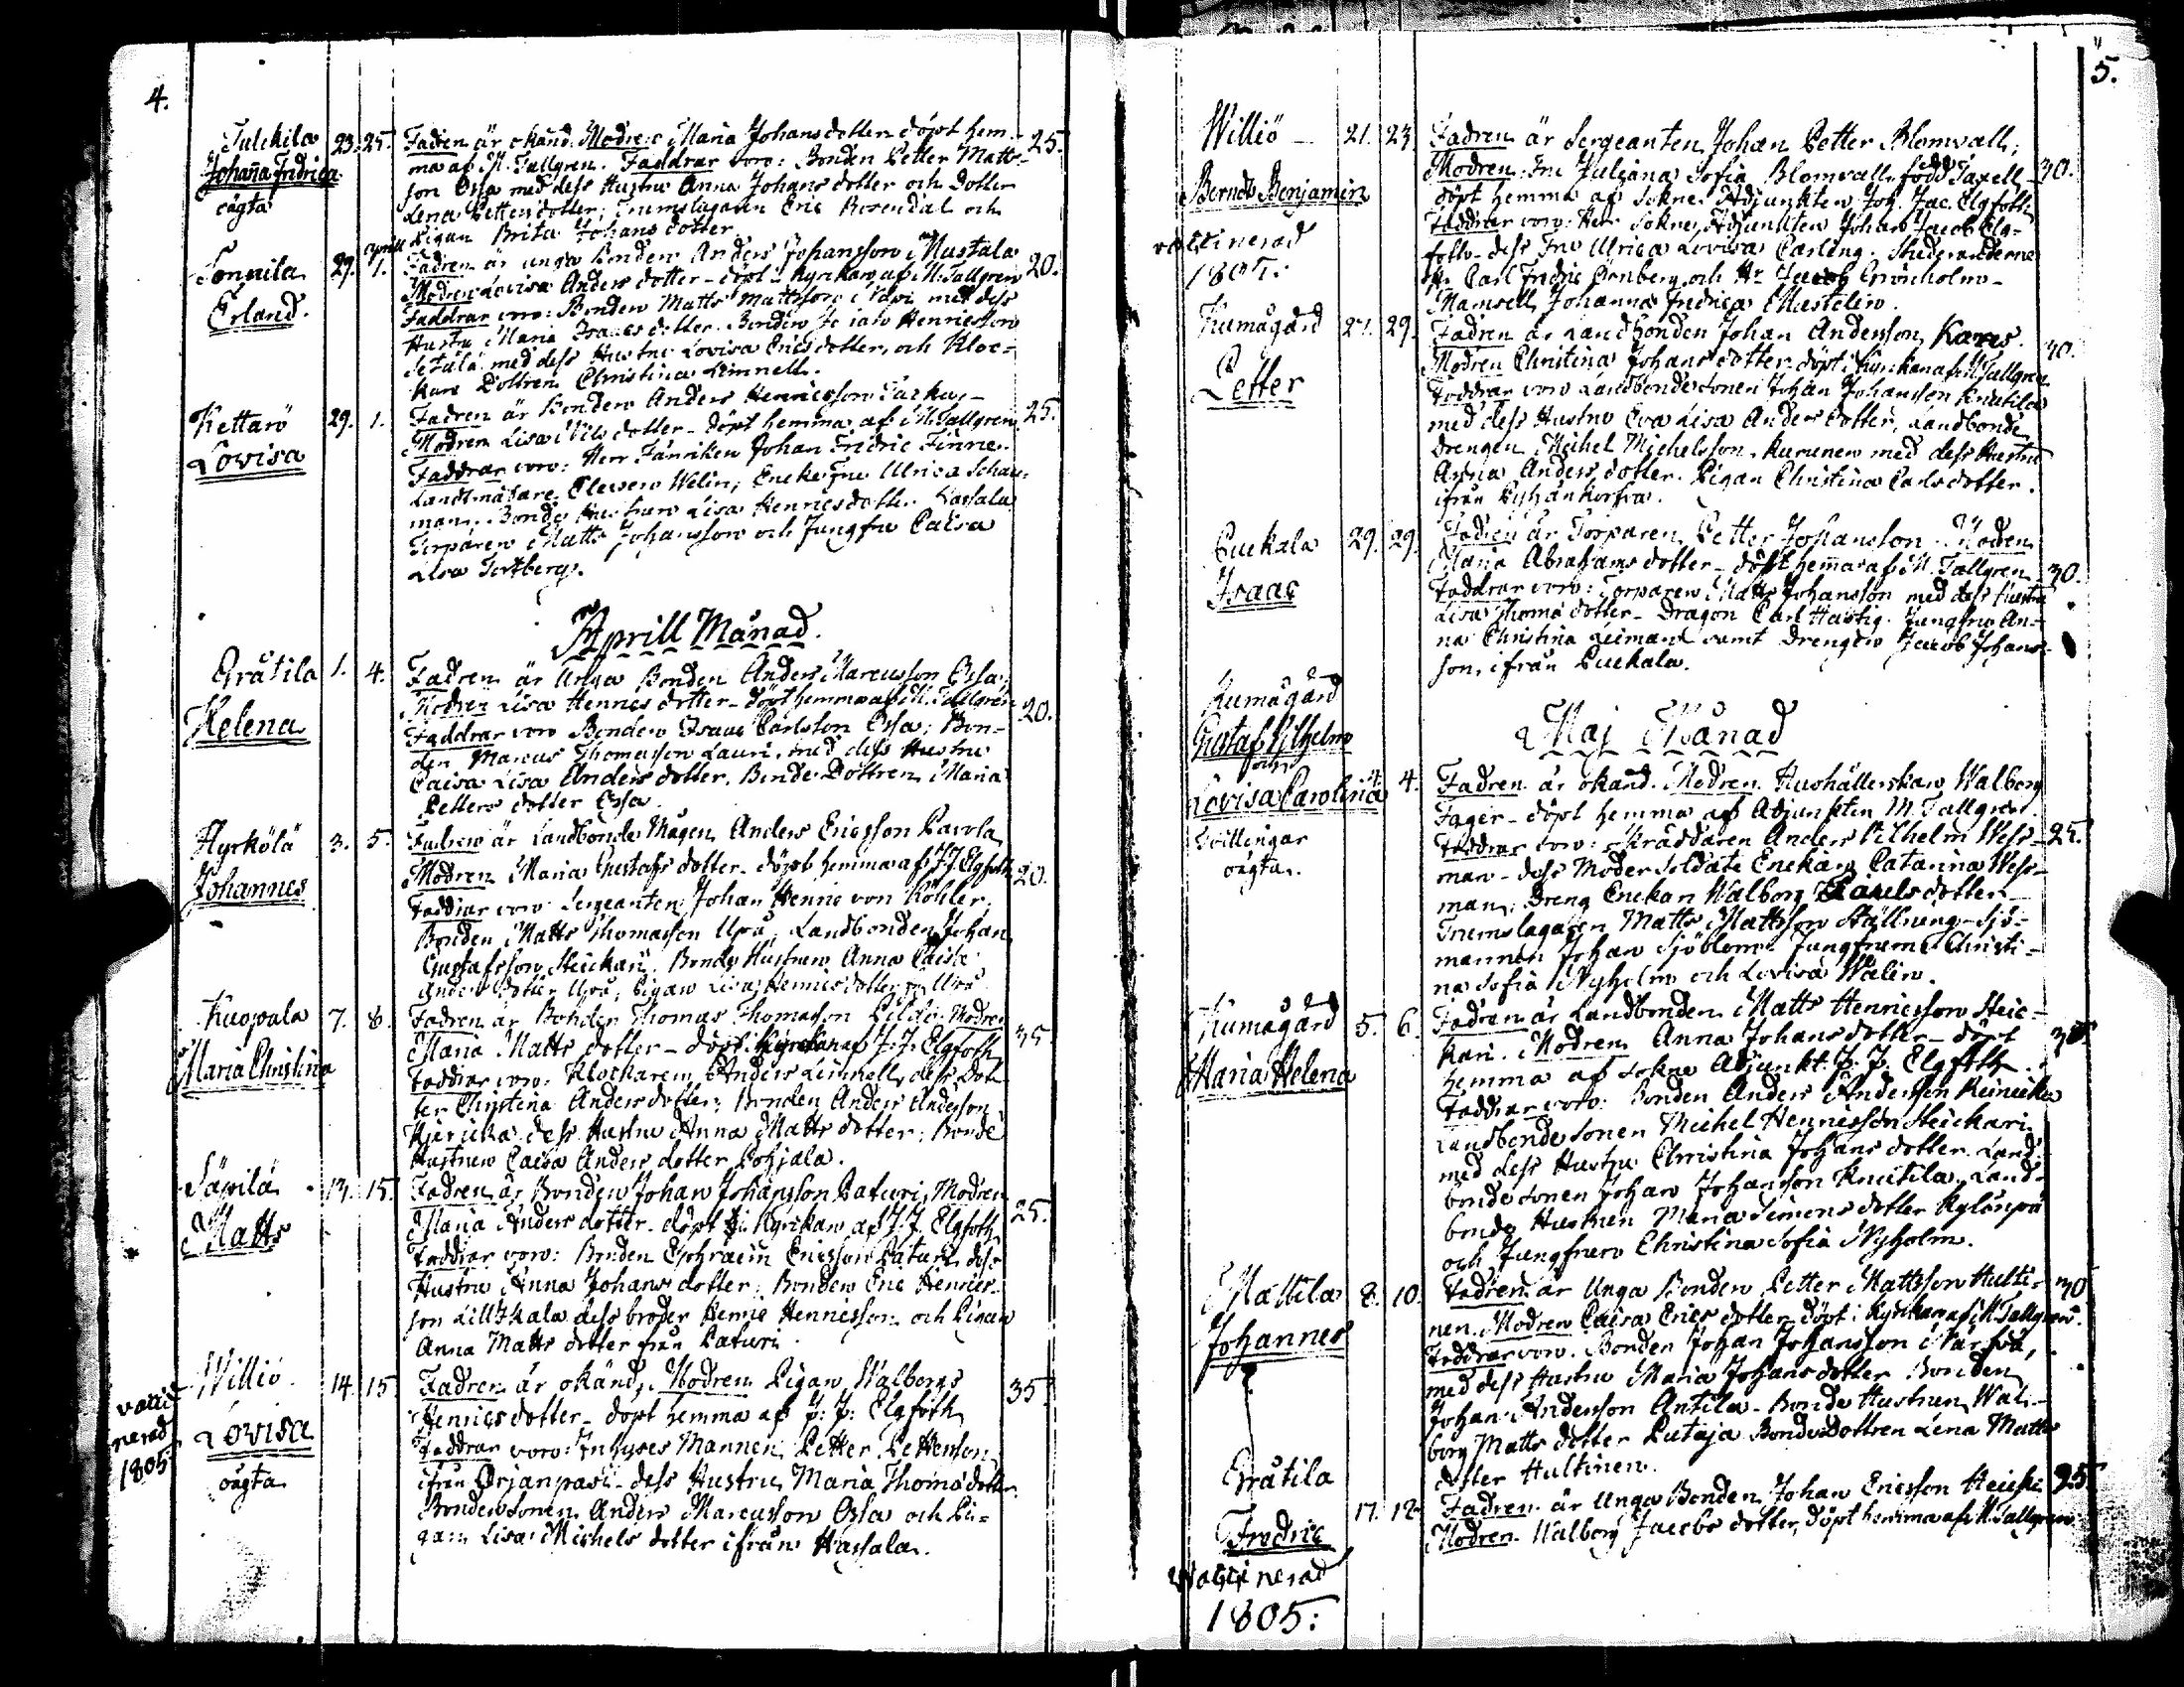 4.
Tulckila 23. 25. Fadren är okänd. Modren Maria Johansdotter döpt hem- 25.
Johanna Fridrica
oägta
ma af M. Tallgren. Faddrar voro: Bonden Petter Matts-
son Ossa med dess Hustru Anna Johans dotter och Dotter
Lena Petters dotter; Trumslagaren Eric Rosendal och
Pigan Brita Johans dotter
Sonnila 29. Aprill 1. Fadren är unga Bonden Anders Johansson Mustala 20.
Erland.
Modren Lovisa Anders dotter - döpt i Kyrckan af M. Tallgren
Faddrar voro: Bonden Matts Mattsson med dess
Hustru Maria Isaacs dotter. Bonden Henricsson
med dess Hustru Lovisa Erics dotter, och Kloc-
kare Dottren Christina Limnell.
Kettarö 29. 1. Fadren är Bonden Anders Henricsson 25.
Lovisa
Modren Lisa Nils dotter - döpt hemma af M. Tallgren
Faddrar voro: Herr Fänriken Johan Fridric Finne.
Landtmätare Eleven Welin; Encke Fru Ulrica Schau-
man. Bonde Hustrun Lisa Henrics dotter Kassala
Torparen Matts Johansson och Jungfru Caisa
Lisa
Aprill Månad.
Gråtila 1. 4. Fadren är Unga Bonden Anders Marcusson Ossa;
Helena
Modren Lisa Henrics dotter - döpt hemma af M. Tallgren 20.
Faddrar voro Bonden Isaac Carlsson Ossa; Bon-
den Marcus Thomasson Lauri, med dess Hustru
Caisa Lisa Anders dotter. Bonde Dottren Maria
Petters dotter Ossa.
Hyrkölä 3. 5. Fadren är Landbonde Mågen Anders Ericsson Pavola
Johannes
Modren Maria Gustafs dotter - döpt hemma af J. J. Elgfoth 20.
Faddrar voro Sergeanten Johan Henric von Köhler,
Bonden Matts Thomasson Upu; Landbonden Johan
Gustafsson Heickari. Bonde Hustrun Anna Caisa
Anders dotter Upu; Pigan Lisa Henrics dotter
Kuopala 7. 8. Fadren är Bonden Thomas Thomasson Modren
Maria Christina
Maria Matts dotter - döpt i Kyrckan af J: J: Elgfoth 35.
Faddrar voro: Klockaren Anders Limnell, dess Dot-
ter Christina Anders dotter; Bonden Anders Andersson
dess Hustru Anna Matts dotter; Bonde
Hustrun Caisa Anders dotter Pohjala.
Säxilä 13. 15. Fadren är Bonden Johan Johansson Paturi, Modren
Matts
Maria Anders dotter - döpt i Kyrckan af J. J. Elgfoth 25.
Faddrar voro: Bonden Ephraim Ericsson Paturi dess
Hustru Anna Johans dotter; Bonden Eric Henrics-
son Lill dess broder Henric Henricsson och Pigan
Anna Matts dotter från Paturi.
Williö 14. 15. Fadren är okänd, Modren Pigan Walborg 35.
vacci-
nerad
1805
Lovisa
oägta
Henrics dotter - döpt hemma af J: J: Elgfoth
Faddrar voro: Inhyses Mannen Petter Pettersson
ifrån Örjanpasi - dess Hustru Maria Thomä dotter
Bondesonen Anders Marcusson Ossa och Pi-
gan Lisa Michels dotter ifrån Hassala.
5.
Williö 21. 23. Fadren är Sergeanten Johan Petter Blomvall;
Berndt Benjamin
vaccinerad
1805:
Modren Fru Juliana Sofia Blomvall född Saxell 30.
döpt hemma af Sokne Adjunkten Joh. Jac. Elgfoth
Faddrar voro: Herr Sokne Adjunkten Johan Jacob Elg-
foth - dess Fru Ulrica Lovisa Carling. Studeranderne
Hr Carl Fridric Örnberg och Hr Jacob Grönholm -
Mamsell Johanna Fridrica Mustelin.
Kumogård 27. 29. Fadren är Landbonden Johan Andersson Karvs. 30.
Petter
Modren Christina Johans dotter - döpt i Kyrckan af M. Tallgren
Faddrar voro Landbondesonen Johan Johansson Knutila
med dess Hustru Eva Lisa Anders dotter; Landbonde
drengen Michel Michelsson Kurunen med dess Hustru
Anna Anders dotter. Pigan Christina Carls dotter.
ifrån Pyhänkorfva.
Puckala 29. 29. Fadren är Torparen Petter Johansson - Modren
Isaac
Maria Abrahams dotter - döpt hemma af M. Tallgren 30.
Faddrar voro: Torparen Matts Johansson med dess Hustru
Lisa Thomä dotter - Dragon Carl Hastig. Jungfru An-
na Christina Reiman samt Drengen Jacob Johans-
son, ifrån Puckala.
Maj Månad
Kumogård
Gustaf Vilhelm
och
Lovisa Carolina
Tvillingar
oägta.
4. 4. Fadren är okänd. Modren Hushållerskan Walborg
Fager - döpt hemma af Adjunkten M. Tallgren.
Faddrar voro: Skräddaren Anders Vilhelm Wess- 25.
man - dess Moder Soldate Enckan Catarina Wess-
man; Dreng Enckan Walborg Pauls dotter -
Trumslagaren Matts Mattsson Ställung - Sjö-
mannen Johan Sjöblom - Jungfrurne Christi-
na Sofia Nyholm och Lovisa Walin.
Kumogård 5. 6. Fadren är Landbonden Matts Henricsson Heic-
Maria Helena
kari. Modren Anna Johans dotter - döpt 30.
hemma af Sokne Adjunkt. J: J. Elgfoth.
Faddrar voro: Bonden Anders Andersson Reinicka
Landbondesonen Michel Henricsson Heickari
med dess Hustru Christina Johans dotter. Land-
bonde sonen Johan Johansson Knutila, Land-
bonde Hustrun Maria Simons dotter Kylänpä
och Jungfrun Christina Sofia Nyholm.
Mattila 8. 10. Fadren är Unga Bonden Petter Mattsson Hulti- 30
Johannes
nen. Modren Caisa Erics dotter, döpt i Kyrckan af M. Tallgren.
Faddrar voro. Bonden Johan Johansson
med dess Hustru Maria Johans dotter Bonden
Johan Andersson Antila - Bonde Hustrun Wal-
borg Matts dotter Putaja Bonde Dottren Lena Matts
dotter Hultinen.
Gråtila 17. 18. Fadren är Unga Bonden Johan Ericsson Heicki 25.
Fredric
Modren Walborg Jacobs dotter, döpt hemma af M. Tallgren
Vaccinerad
1805: